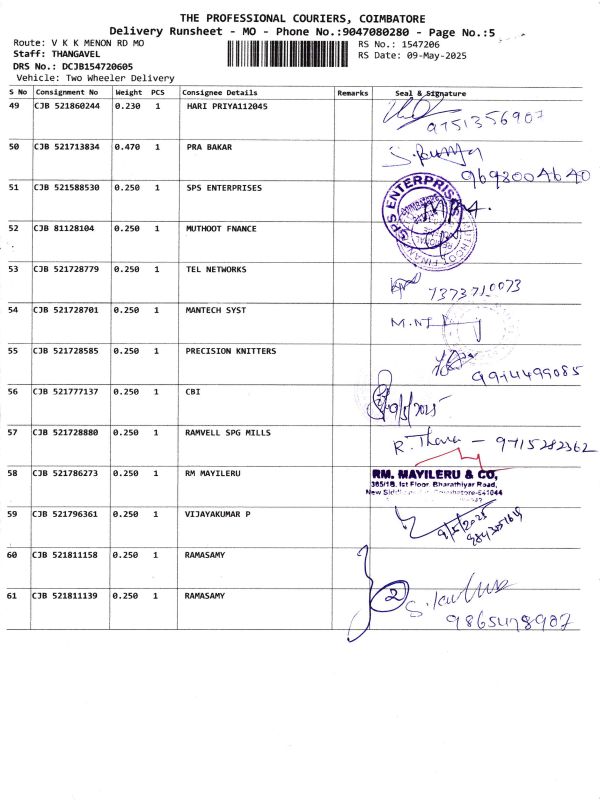 THE PROFESSIONAL COURIERS, COIMBATORE
Delivery Runsheet - MO - Phone No.:9047080280 - Page No.:5
Route: V K K MENON RD MO
RS No.: 1547206
Staff: THANGAVEL
RS Date: 09-May-2025
DRS No.: DCJB154720605
Vehicle: Two Wheeler Delivery
S No Consignment No Weight PCS Consignee Details Remarks Seal & Signature
49 CJB 521860244 0.230 1 HARI PRIYA112045
9751356907
50 CJB 521713834 0.470 1 PRA BAKAR
9698004640
51 CJB 521588530 0.250 1 SPS ENTERPRISES
SPS ENTERPRISES
52 CJB 81128104 0.250 1 MUTHOOT FNANCE
53 CJB 521728779 0.250 1 TEL NETWORKS
7373710073
54 CJB 521728701 0.250 1 MANTECH SYST
55 CJB 521728585 0.250 1 PRECISION KNITTERS
9914499085
56 CJB 521777137 0.250 1 CBI
9/5/2025
57 CJB 521728880 0.250 1 RAMVELL SPG MILLS
9715282362
58 CJB 521786273 0.250 1 RM MAYILERU
RM. MAYILERU & CO,
365/1B, Ist Floor, Bharathiyar Road,
New
59 CJB 521796361 0.250 1 VIJAYAKUMAR P
9/5/2025
60 CJB 521811158 0.250 1 RAMASAMY
2
61 CJB 521811139 0.250 1 RAMASAMY
9865478907